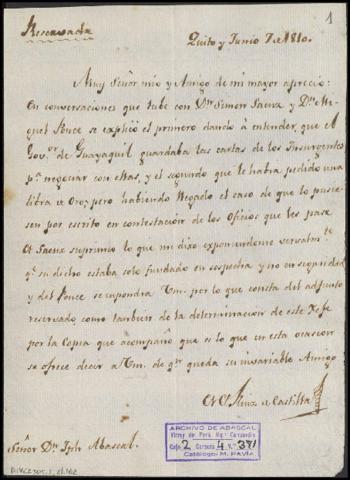 1
Reservada
Quito y Junio 7. 1810.
Muy Señor mio y Amigo de mi mayor aprecio:
En conversaciones que tube con Dn. Simon Saenz y Dn. Mi-
guel Ponce se explicó el primero dando à entender, que el
Govor. de Guayaquil guardaba las cartas de los Insurgentes
pa. negociar con ellas, y el segundo que le habia pedido una
libra de Oro; pero habiendo llegado el caso de que lo pusie-
sen por escrito en contestacion de los Oficios que les pasé
el Saenz suprimio lo que mi dixo exponiendome verbalmte.
qe. su dicho estaba solo fundado en sospecha y no en seguridad
y del Ponce se impondra Vm. por lo que consta del adjunto
reservado como tambien de la determinacion de este Xefe
por la Copia que acompaño que es lo que en esta ocasion
se ofrece decir a Vm. de qn. queda su invariable Amigo
El C. Ruiz de Castilla
Señor Dn. Jph Abascal.
ARCHIVO DE ABASCAL
Virrey del Perú, Mq. Concordia
Caja 2 Carpeta 4 N.º 371
Catálogo: M. PAVÍA